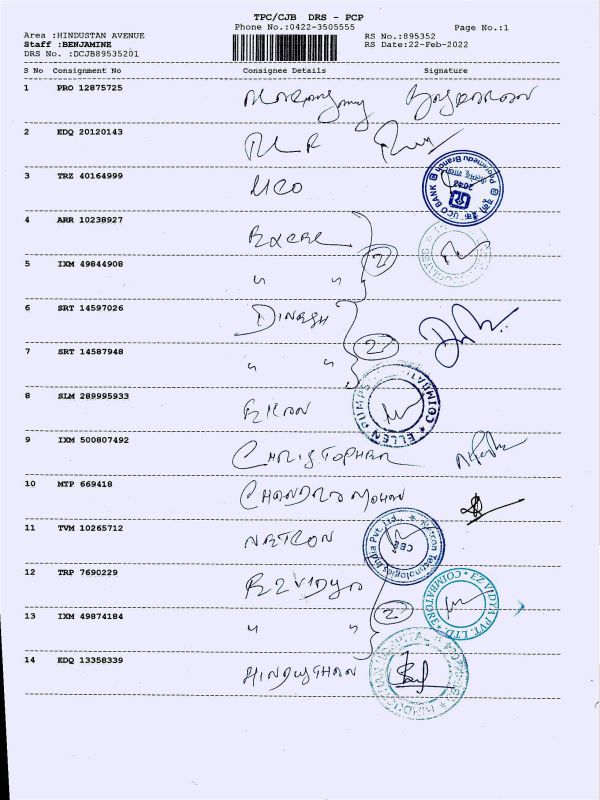 TPC/CJB DRS - PCP
Phone No.:0422-3505555 Page No.:1
Area :HINDUSTAN AVENUE RS No.:895352
Staff :BENJAMINE RS Date:22-Feb-2022
DRS No. :DCJB89535201
S No Consignment No Consignee Details Signature
1 PRO 12875725
2 EDQ 20120143
3 TRZ 40164999 UCO
UCO BANK Peelamedu Branch
4 ARR 10238927
5 IXM 49844908 " " 2
6 SRT 14597026 DINESH
7 SRT 14587948 " " 2
8 SLM 289995933
ELLEN PUMPS
9 IXM 500807492 CHRISTOPHER
10 MTP 669418 CHANDRA MOHAN
11 TVM 10265712 NETCON
Technologies India Pvt. Ltd., CBE
12 TRP 7690229 EZVIDYA
EZ VIDYA PVT. LTD COIMBATORE
13 IXM 49874184 " " 2
14 EDQ 13358339 HINDUSTHAN